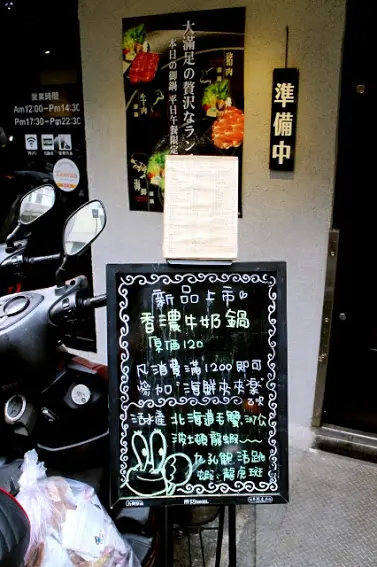 大滿足の贅沢なラン
本日の御鍋 平日午餐限定
豬肉
牛肉
海鮮
準備中
營業時間
Am12:00~Pm14:30
Pm17:30~Pm22:30
新品上市
香濃牛奶鍋
原価120
凡消費滿1200即可
參加"海鮮夾夾樂"
乙次
活水產 北海道毛蟹
波士頓龍蝦
九孔鮑 活跳
蝦 龍虎斑